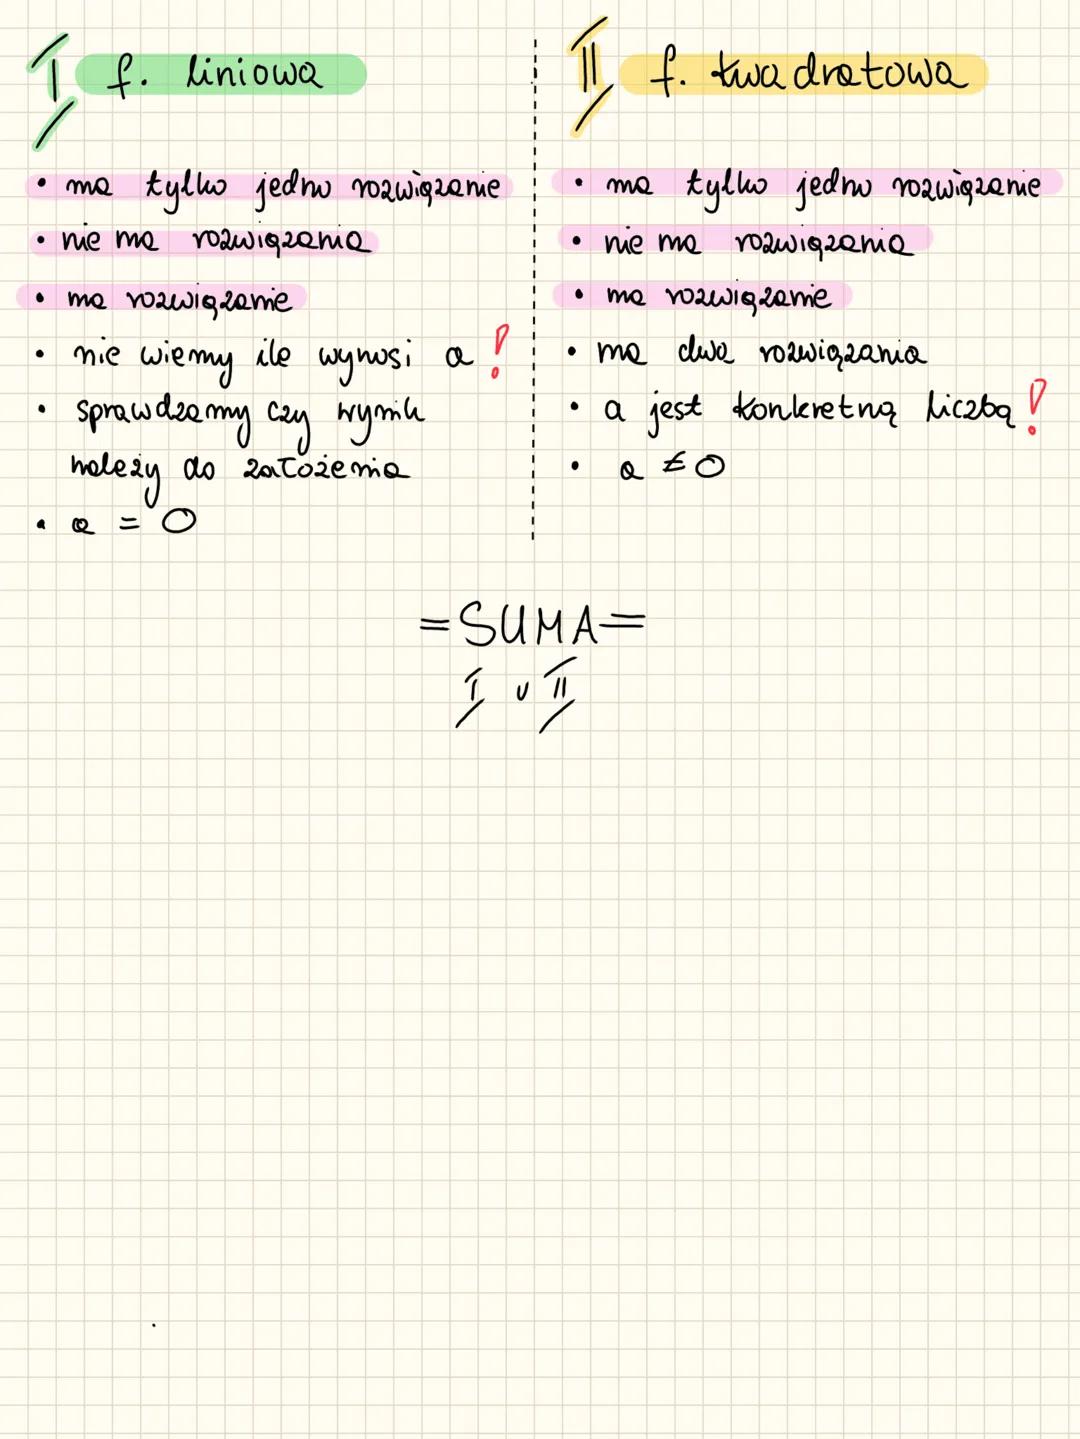 I f. liniowa
• ma tylko jedno rozwiązanie
• nie ma rozwiązania
• ma rozwiązanie
• nie wiemy ile wynosi a !
• sprawdzamy czy wynik
należy do założenia
• a = 0
II f. kwadratowa
• ma tylko jedno rozwiązanie
• nie ma rozwiązania
• ma rozwiązanie
• ma dwa rozwiązania
• a jest konkretną liczbą !
• a ≠ 0
= SUMA =
I ∪ II